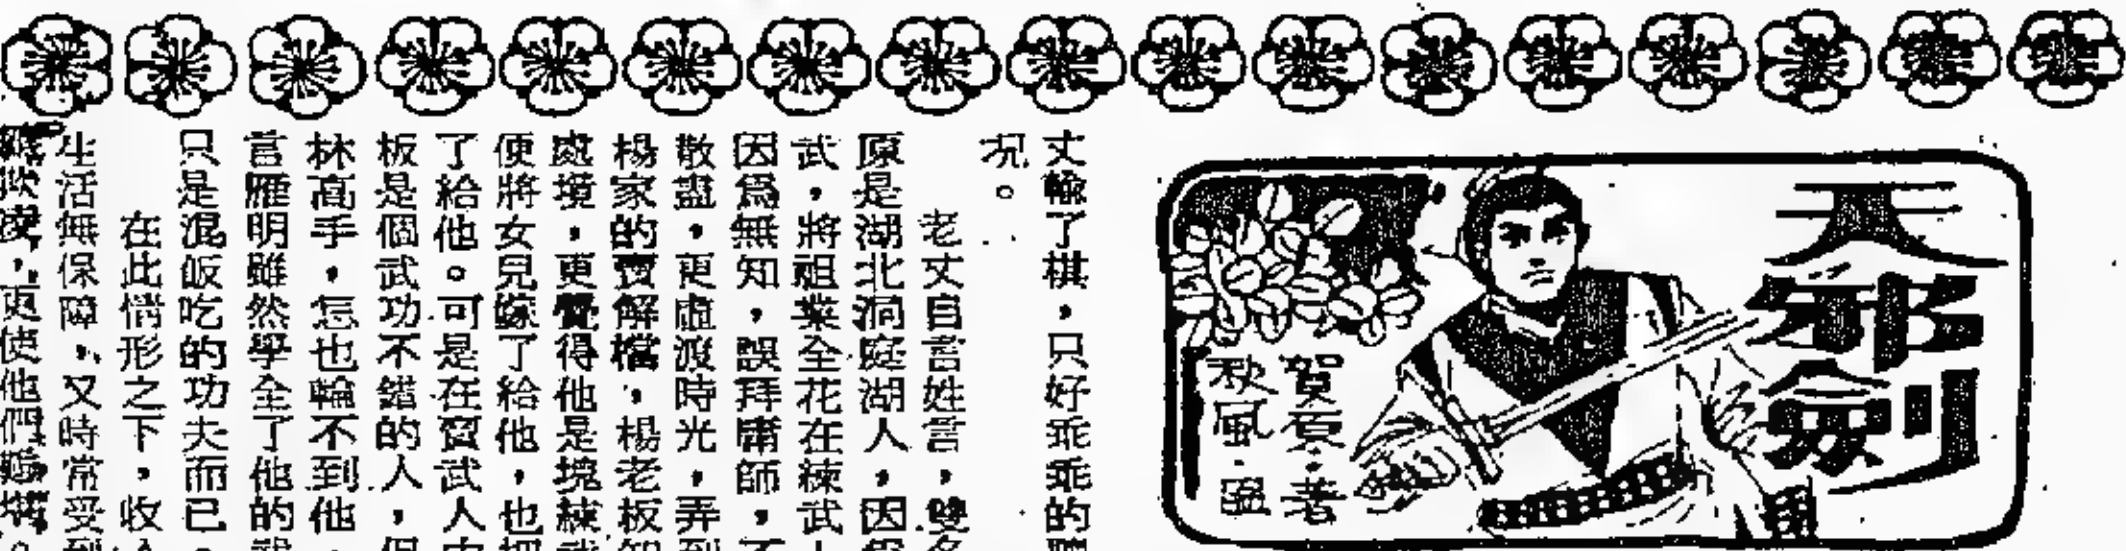 天邪劍
賀夏・著
秋風・圖
丈輸了棋，只好乖乖的聽
況。
老丈自言姓言，雙名
原是湖北洞庭湖人，因爲
武，將祖業全花在練武
因爲無知，誤拜庸師，不
散盡，更虛渡時光，弄到
楊家的賣解檔，楊老板知
處境，更覺得他是塊練武
便將女兒嫁了給他，也把
了給他。可是在賣武人中
板是個武功不錯的人，但
林高手，怎也輪不到他，
言雁明雖然學全了他的武
只是混飯吃的功夫而已。
在此情形之下，收入
生活無保障，又時常受到
，更使他們